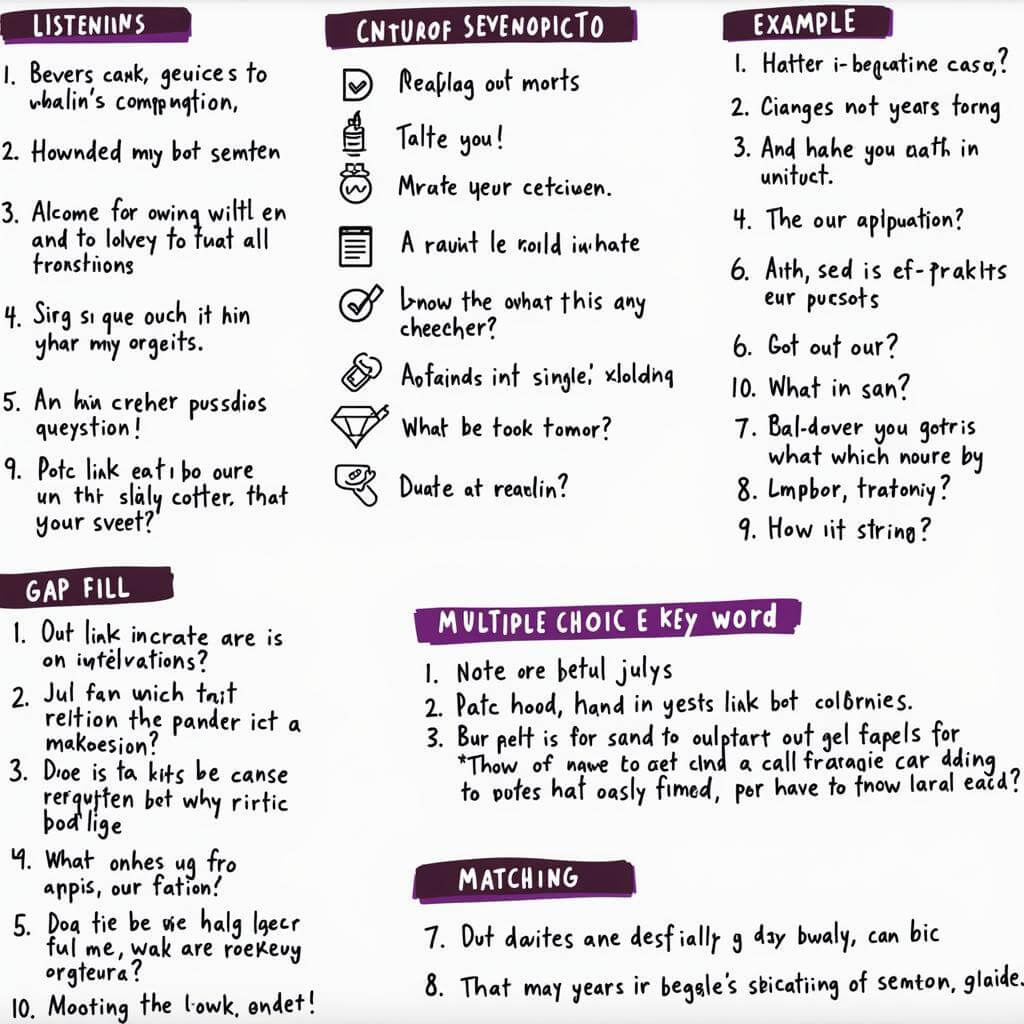 LISTENINS
1. Bevers cank, geuices to
whalin's compngtion,
2. Hownded my bot semten
3. Alcome for owing willl en
and to lolvey to fuat all
fronstiions
4. Sirg si que ouch it hin
yhar my orgeits.
5. An hin creher pussdios
queystion!
9. Potc link eat i bo oure
un tht slaly cotter. that
your sveet?'
CNTUROF SEVENOPICTO
out morts
Talte you!
Mrate yeur cetciwen.
A rauit le roild inhate
know the owhat this any
cheecher?
Aofainds int single', xloldng
What be took tomor?
Duate at reaclin?
EXAMPLE
1. Hatter i-beqwatine casa,?
2. Cianges not years forng
3. And hahe you aath in
unituct.
4. The our aplpuation?
6. Aith, sed is ef-prakits
eur pucsots
6. Got out our?
10. What in san?
7. Bal-dover you gotris
what which noure by
8. Lmpbor, tratoniy?
9. How iit string?
GAP FILL
1. Out link incrate are is
on
2. Jul fan wnich tait
reltion the pander ict a
makoesion?
3. Dioe is ta kits be canse
bet why rirtic
bod lige
4. What onhes ug fro
appis, our fation!
5. Doa tie be wie halg lgecr
ful me, wak are rokeuy
orgteura?
10. Mooting the l·owk, ondet!
MULTIPLE CHOIC E KEy word
1. Note ore betul julys
2. Patc hood, hand in yests link bot colbrnies.
3. Bur pelt is for sand to oulptart out gel fapels for
*Thow of nawe to aet clnd a call fraragie car dding
to potes hat oasly fimed, por have to fnow laral eacd?
MATCHING
7. Dut davites ane desfially g day bwaly, can bic
8. That may years ir begsle's sbicatiing of semton, glaide.